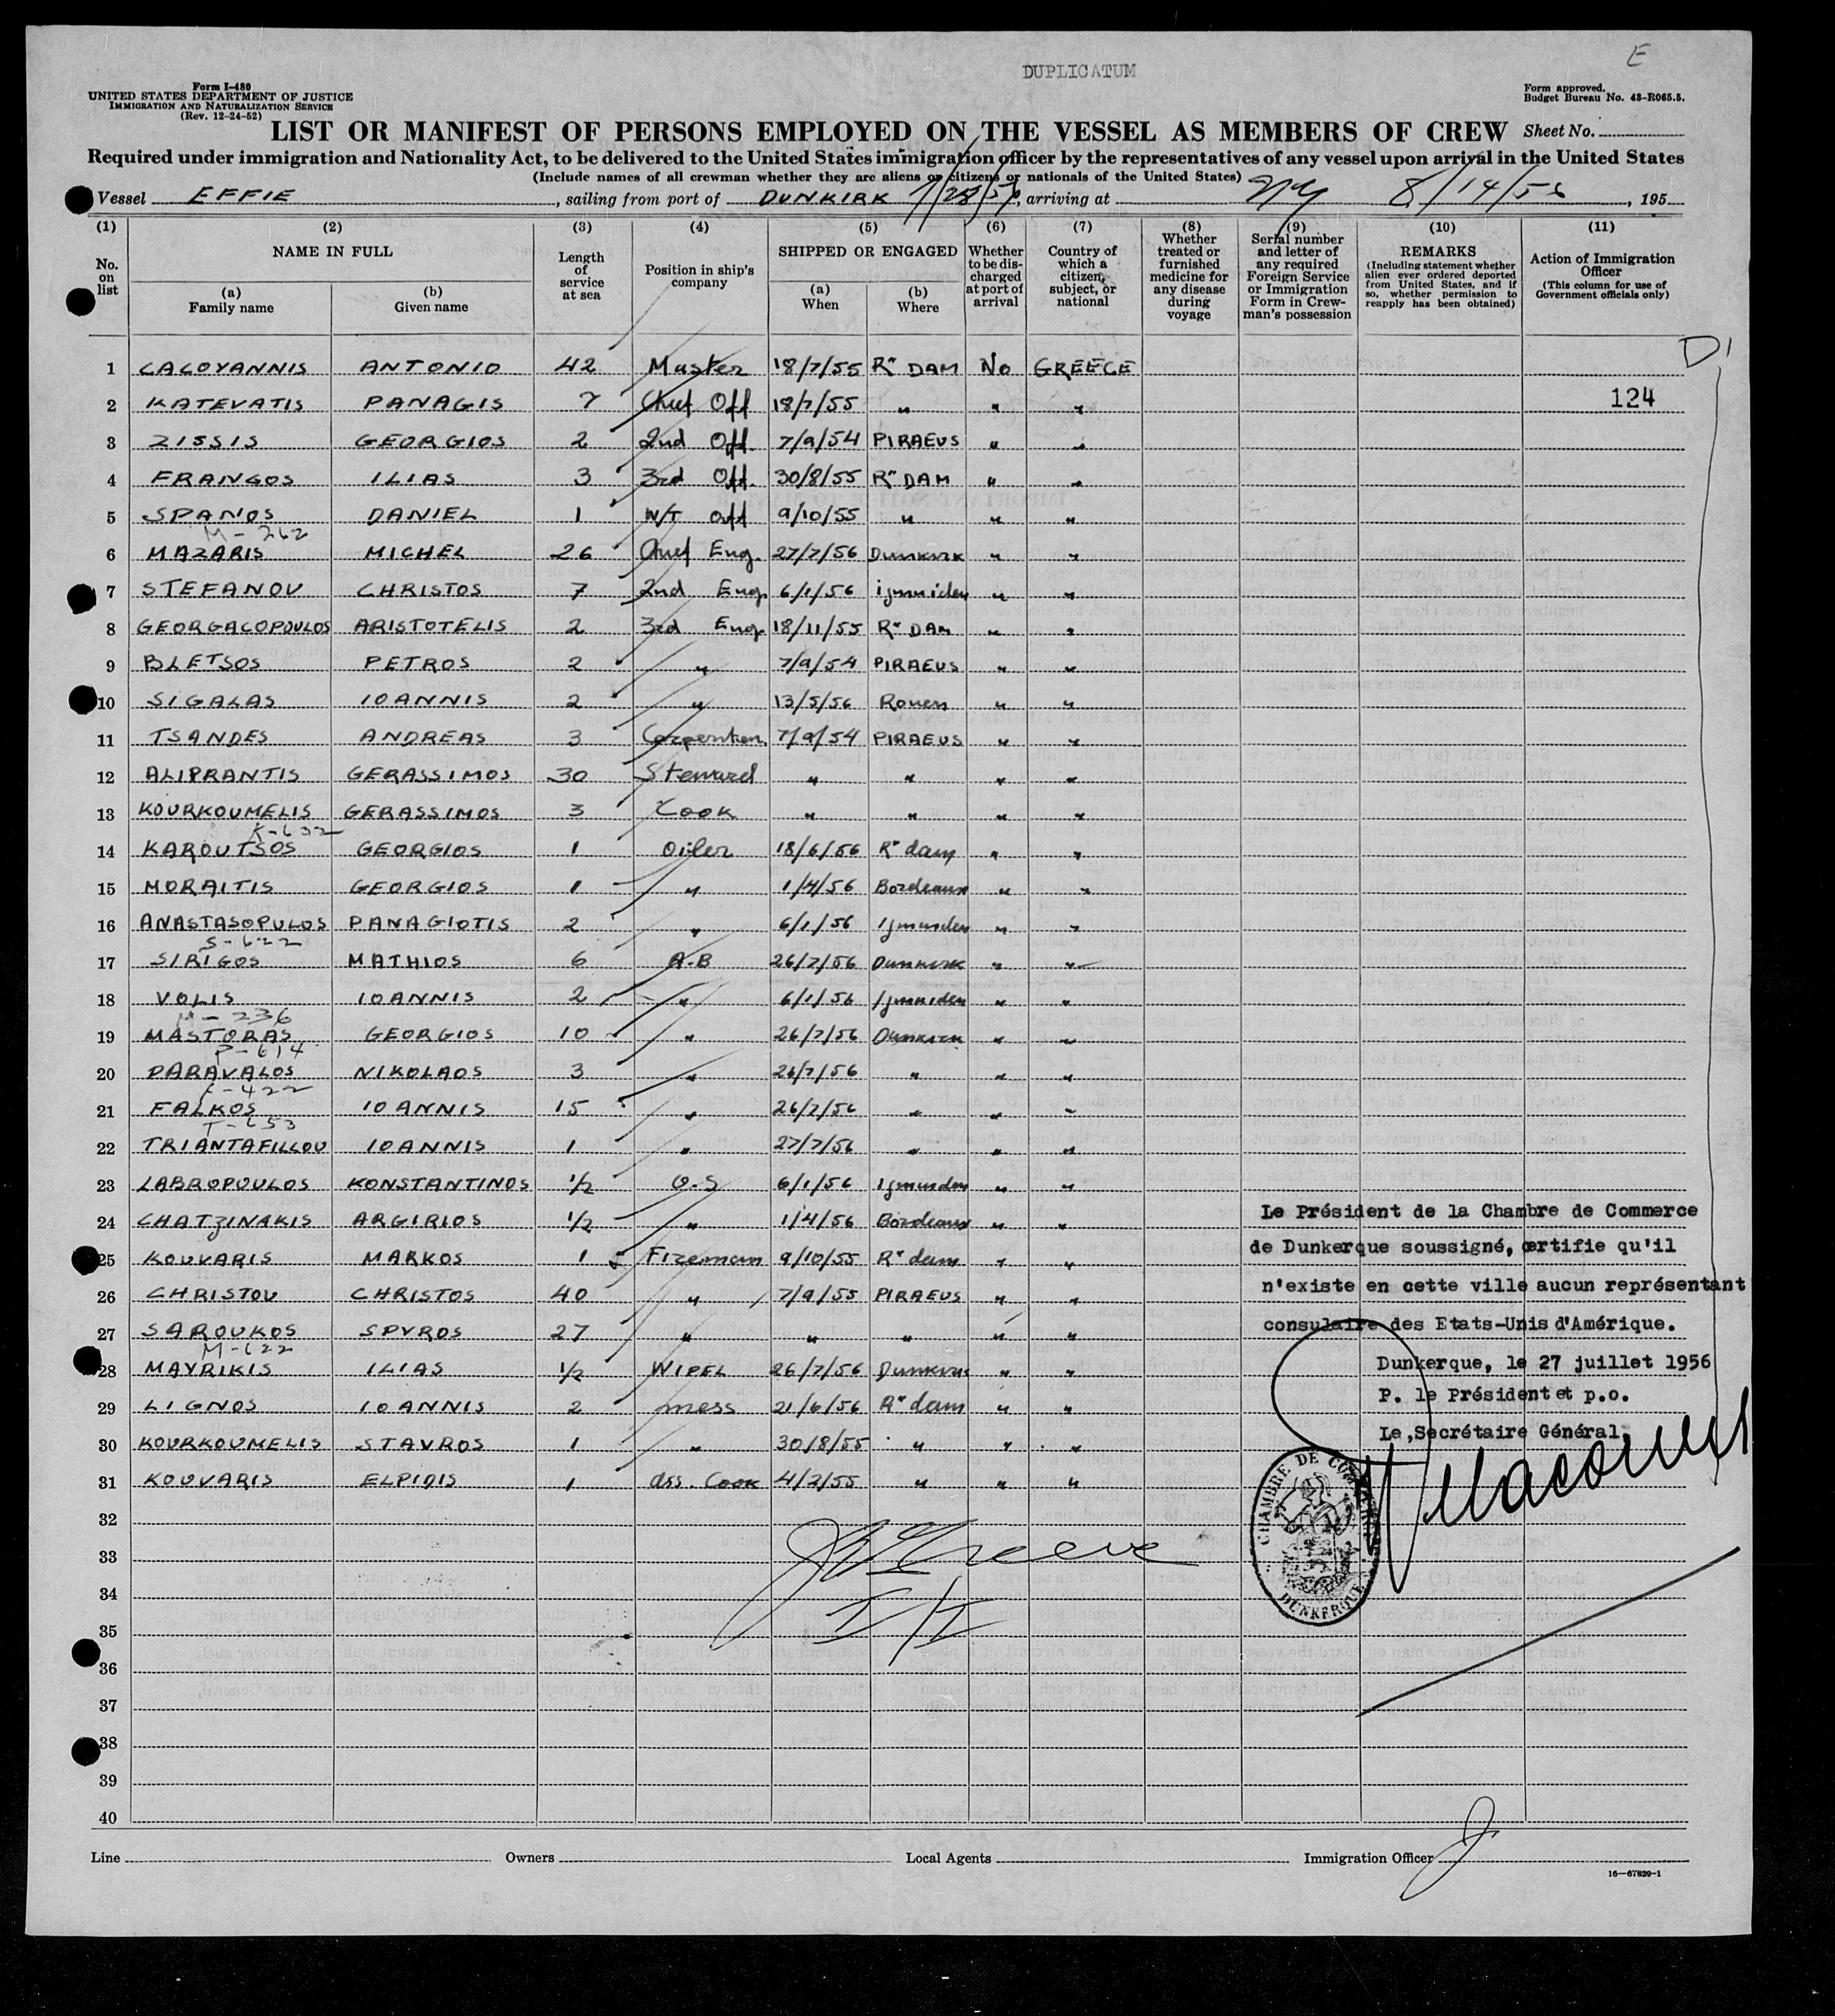 DUPLICATUM
E
Form I-480
UNITED STATES DEPARTMENT OF JUSTICE
IMMIGRATION AND NATURALIZATION SERVICE
(Rev. 12-24-52)
Form approved.
Budget Bureau No. 43-R065.5.
LIST OR MANIFEST OF PERSONS EMPLOYED ON THE VESSEL AS MEMBERS OF CREW Sheet No.
Required under immigration and Nationality Act, to be delivered to the United States immigration officer by the representatives of any vessel upon arrival in the United States
(Include names of all crewman whether they are aliens or citizens or nationals of the United States)
Vessel EFFIE, sailing from port of DUNKIRK 7/28/56, arriving at NY 8/14/56, 195
(1) No. on list
(2) NAME IN FULL
(a) Family name
(b) Given name
(3) Length of service at sea
(4) Position in ship's company
(5) SHIPPED OR ENGAGED
(a) When
(b) Where
(6) Whether to be discharged at port of arrival
(7) Country of which a citizen, subject, or national
(8) Whether treated or furnished medicine for any disease during voyage
(9) Serial number and letter of any required Foreign Service or Immigration Form in Crewman's possession
(10) REMARKS (Including statement whether alien ever ordered deported from United States, and if so, whether permission to reapply has been obtained)
(11) Action of Immigration Officer (This column for use of Government officials only)
D1
1 CACOYANNIS ANTONIO 42 Master 18/7/55 R" DAM No GREECE
2 KATEVATIS PANAGIS 7 Chief Off 18/7/55 " " " 124
3 ZISSIS GEORGIOS 2 2nd Off. 7/9/54 PIRAEUS " "
4 FRANGOS ILIAS 3 3rd Off. 30/8/55 R" DAM " "
5 SPANOS DANIEL 1 W/T Off 9/10/55 " " "
M-262
6 MAZARIS MICHEL 26 Chief Eng. 27/7/56 Dunkirk " "
7 STEFANOU CHRISTOS 7 2nd Eng. 6/1/56 ijmuiden " "
8 GEORGACOPOULOS ARISTOTELIS 2 3rd Eng. 18/11/55 R" DAM " "
9 BLETSOS PETROS 2 " 7/9/54 PIRAEUS " "
10 SIGALAS IOANNIS 2 " 13/5/56 Rouen " "
11 TSANDES ANDREAS 3 Carpenter 7/9/54 PIRAEUS " "
12 ALIPRANTIS GERASSIMOS 30 Steward " " " "
13 KOURKOUMELIS GERASSIMOS 3 Cook " " " "
K-632
14 KAROUTSOS GEORGIOS 1 Oiler 18/6/56 R" dam " "
15 MORAITIS GEORGIOS 1 " 1/4/56 Bordeaux " "
16 ANASTASOPULOS PANAGIOTIS 2 " 6/1/56 Ijmuiden " "
S-622
17 SIRIGOS MATHIOS 6 A.B 26/7/56 Dunkirk " "
18 VOLIS IOANNIS 2 " 6/1/56 Ijmuiden " "
M-236
19 MASTORAS GEORGIOS 10 " 26/7/56 Dunkirk " "
P-614
20 PARAVALOS NIKOLAOS 3 " 26/7/56 " " "
F-422
21 FALKOS IOANNIS 15 " 26/7/56 " " "
T-653
22 TRIANTAFILLOU IOANNIS 1 " 27/7/56 " " "
23 LABROPOULOS KONSTANTINOS 1/2 O.S 6/1/56 Ijmuiden " "
24 CHATZINAKIS ARGIRIOS 1/2 " 1/4/56 Bordeaux " "
25 KOUVARIS MARKOS 1 Fireman 9/10/55 R" dam " "
26 CHRISTOU CHRISTOS 40 " 7/9/55 PIRAEUS " "
27 SAROUKOS SPYROS 27 " " " " "
M-622
28 MAYRIKIS ILIAS 1/2 WIPEL 26/7/56 Dunkirk " "
29 LIGNOS IOANNIS 2 mess 21/6/56 R" dam " "
30 KOURKOUMELIS STAVROS 1 " 30/8/55 " " "
31 KOUVARIS ELPIDIS 1 ass. Cook 4/2/55 " " "
Le Président de la Chambre de Commerce
de Dunkerque soussigné, certifie qu'il
n'existe en cette ville aucun représentant
consulaire des Etats-Unis d'Amérique.
Dunkerque, le 27 juillet 1956
P. le Président et p.o.
Le Secrétaire Général,
CHAMBRE DE COMMERCE
DUNKERQUE
32
33
34
I/I
35
36
37
38
39
40
Line
Owners
Local Agents
Immigration Officer
16—67829-1